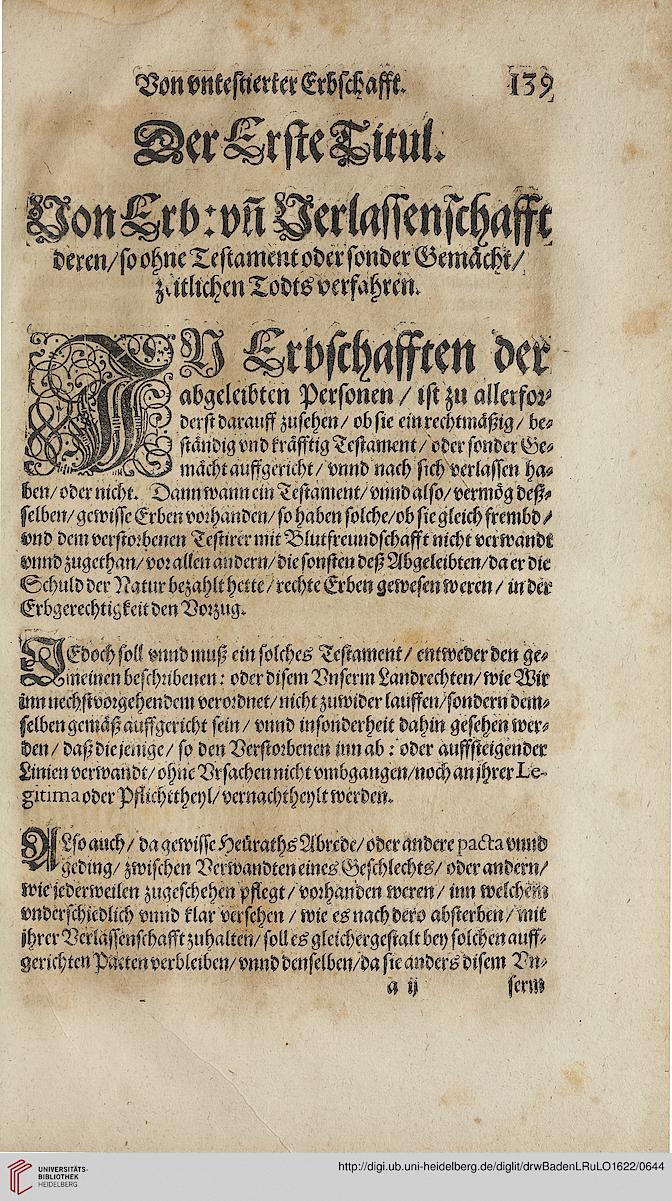 Von vntestierter Erbschafft. 139
Der Erste Titul.
Von Erb: vn̄ Verlassenschafft
deren / so ohne Testament oder sonder Gemächt /
zeitlichen Todts verfahren.
IN Erbschafften der
abgeleibten Personen / ist zu allerfor⸗
derst darauff zusehen / ob sie ein rechtmäßig / be⸗
ständig vnd kräfftig Testament / oder sonder Ge⸗
mächt auffgericht / vnnd nach sich verlassen ha⸗
ben / oder nicht. Dann wann ein Testament / vnnd also / vermög deß⸗
selben / gewisse Erben vorhanden / so haben solche / ob sie gleich frembd /
vnd dem verstorbenen Testirer mit Blutfreundschafft nicht verwandt
vnnd zugethan / vor allen andern / die sonsten deß Abgeleibten / da er die
Schuld der Natur bezahlt hette / rechte Erben gewesen weren / in der
Erbgerechtigkeit den Vorzug.
JEdoch soll vnnd muß ein solches Testament / entweder den ge⸗
meinen beschribenen: oder disem Vnserm Landrechten / wie Wir
inn nechstvorgehendem verordnet / nicht zuwider lauffen / sondern dem⸗
selben gemäß auffgericht sein / vnnd insonderheit dahin gesehen wer⸗
den / daß die jenige / so den Verstorbenen inn ab: oder auffsteigender
Linien verwandt / ohne Vrsachen nicht vmbgangen / noch an jhrer Le-
gitima oder Pflichttheyl / vernachtheylt werden.
ALso auch / da gewisse Heüraths Abrede / oder andere pacta vnnd
geding / zwischen Verwandten eines Geschlechts / oder andern /
wie jederweilen zugeschehen pflegt / vorhanden weren / inn welchem
vnderschiedlich vnnd klar versehen / wie es nach dero absterben / mit
jhrer Verlassenschafft zuhalten / soll es gleichergestalt bey solchen auff⸗
gerichten Pacten verbleiben / vnnd denselben / da sie anders disem Vn⸗
a ij serm
UNIVERSITÄTS-
BIBLIOTHEK
HEIDELBERG
http://digi.ub.uni-heidelberg.de/diglit/drwBadenLRuLO1622/0644